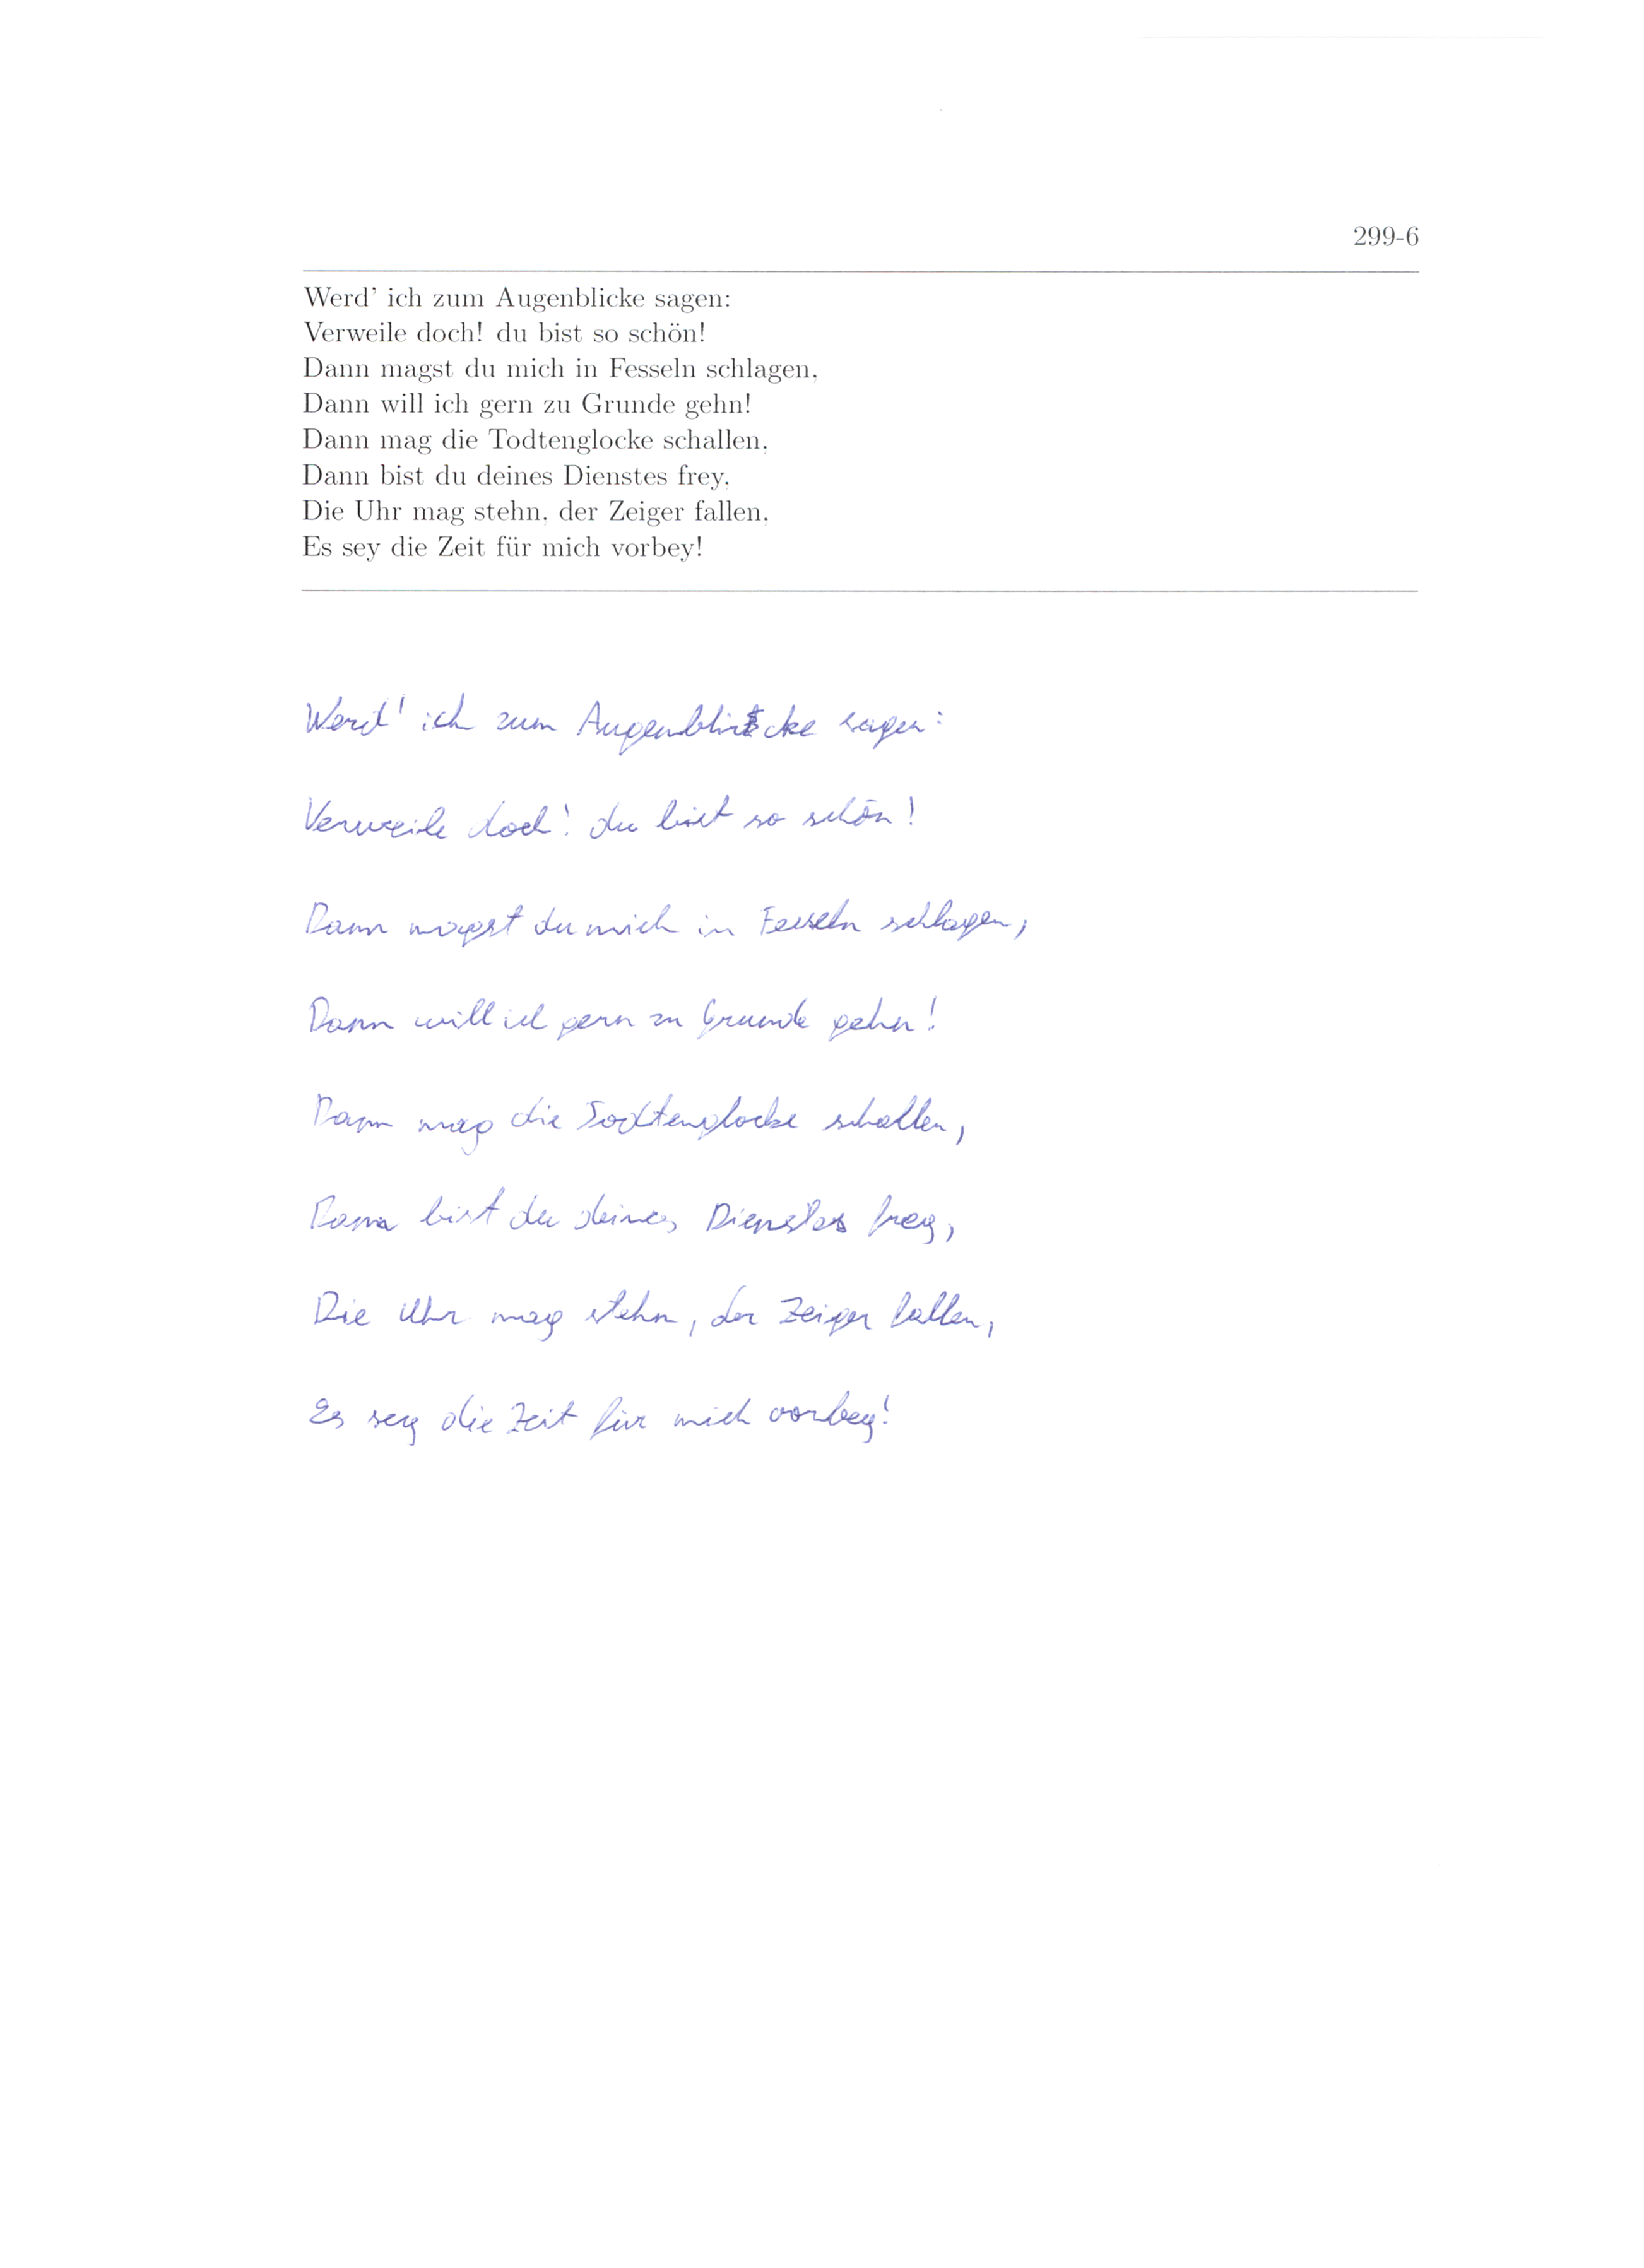 299-6
Werd' ich zum Augenblicke sagen:
Verweile doch! du bist so schön!
Dann magst du mich in Fesseln schlagen,
Dann will ich gern zu Grunde gehn!
Dann mag die Todtenglocke schallen,
Dann bist du deines Dienstes frey,
Die Uhr mag stehn, der Zeiger fallen,
Es sey die Zeit für mich vorbey!
Werd' ich zum Augenblicke sagen:
Verweile doch! du bist so schön!
Dann magst du mich in Fesseln schlagen,
Dann will ich gern zu Grunde gehn!
Dann mag die Todtenglocke schallen,
Dann bist du deines Dienstes frey,
Die Uhr mag stehn, der Zeiger fallen,
Es sey die Zeit für mich vorbey!